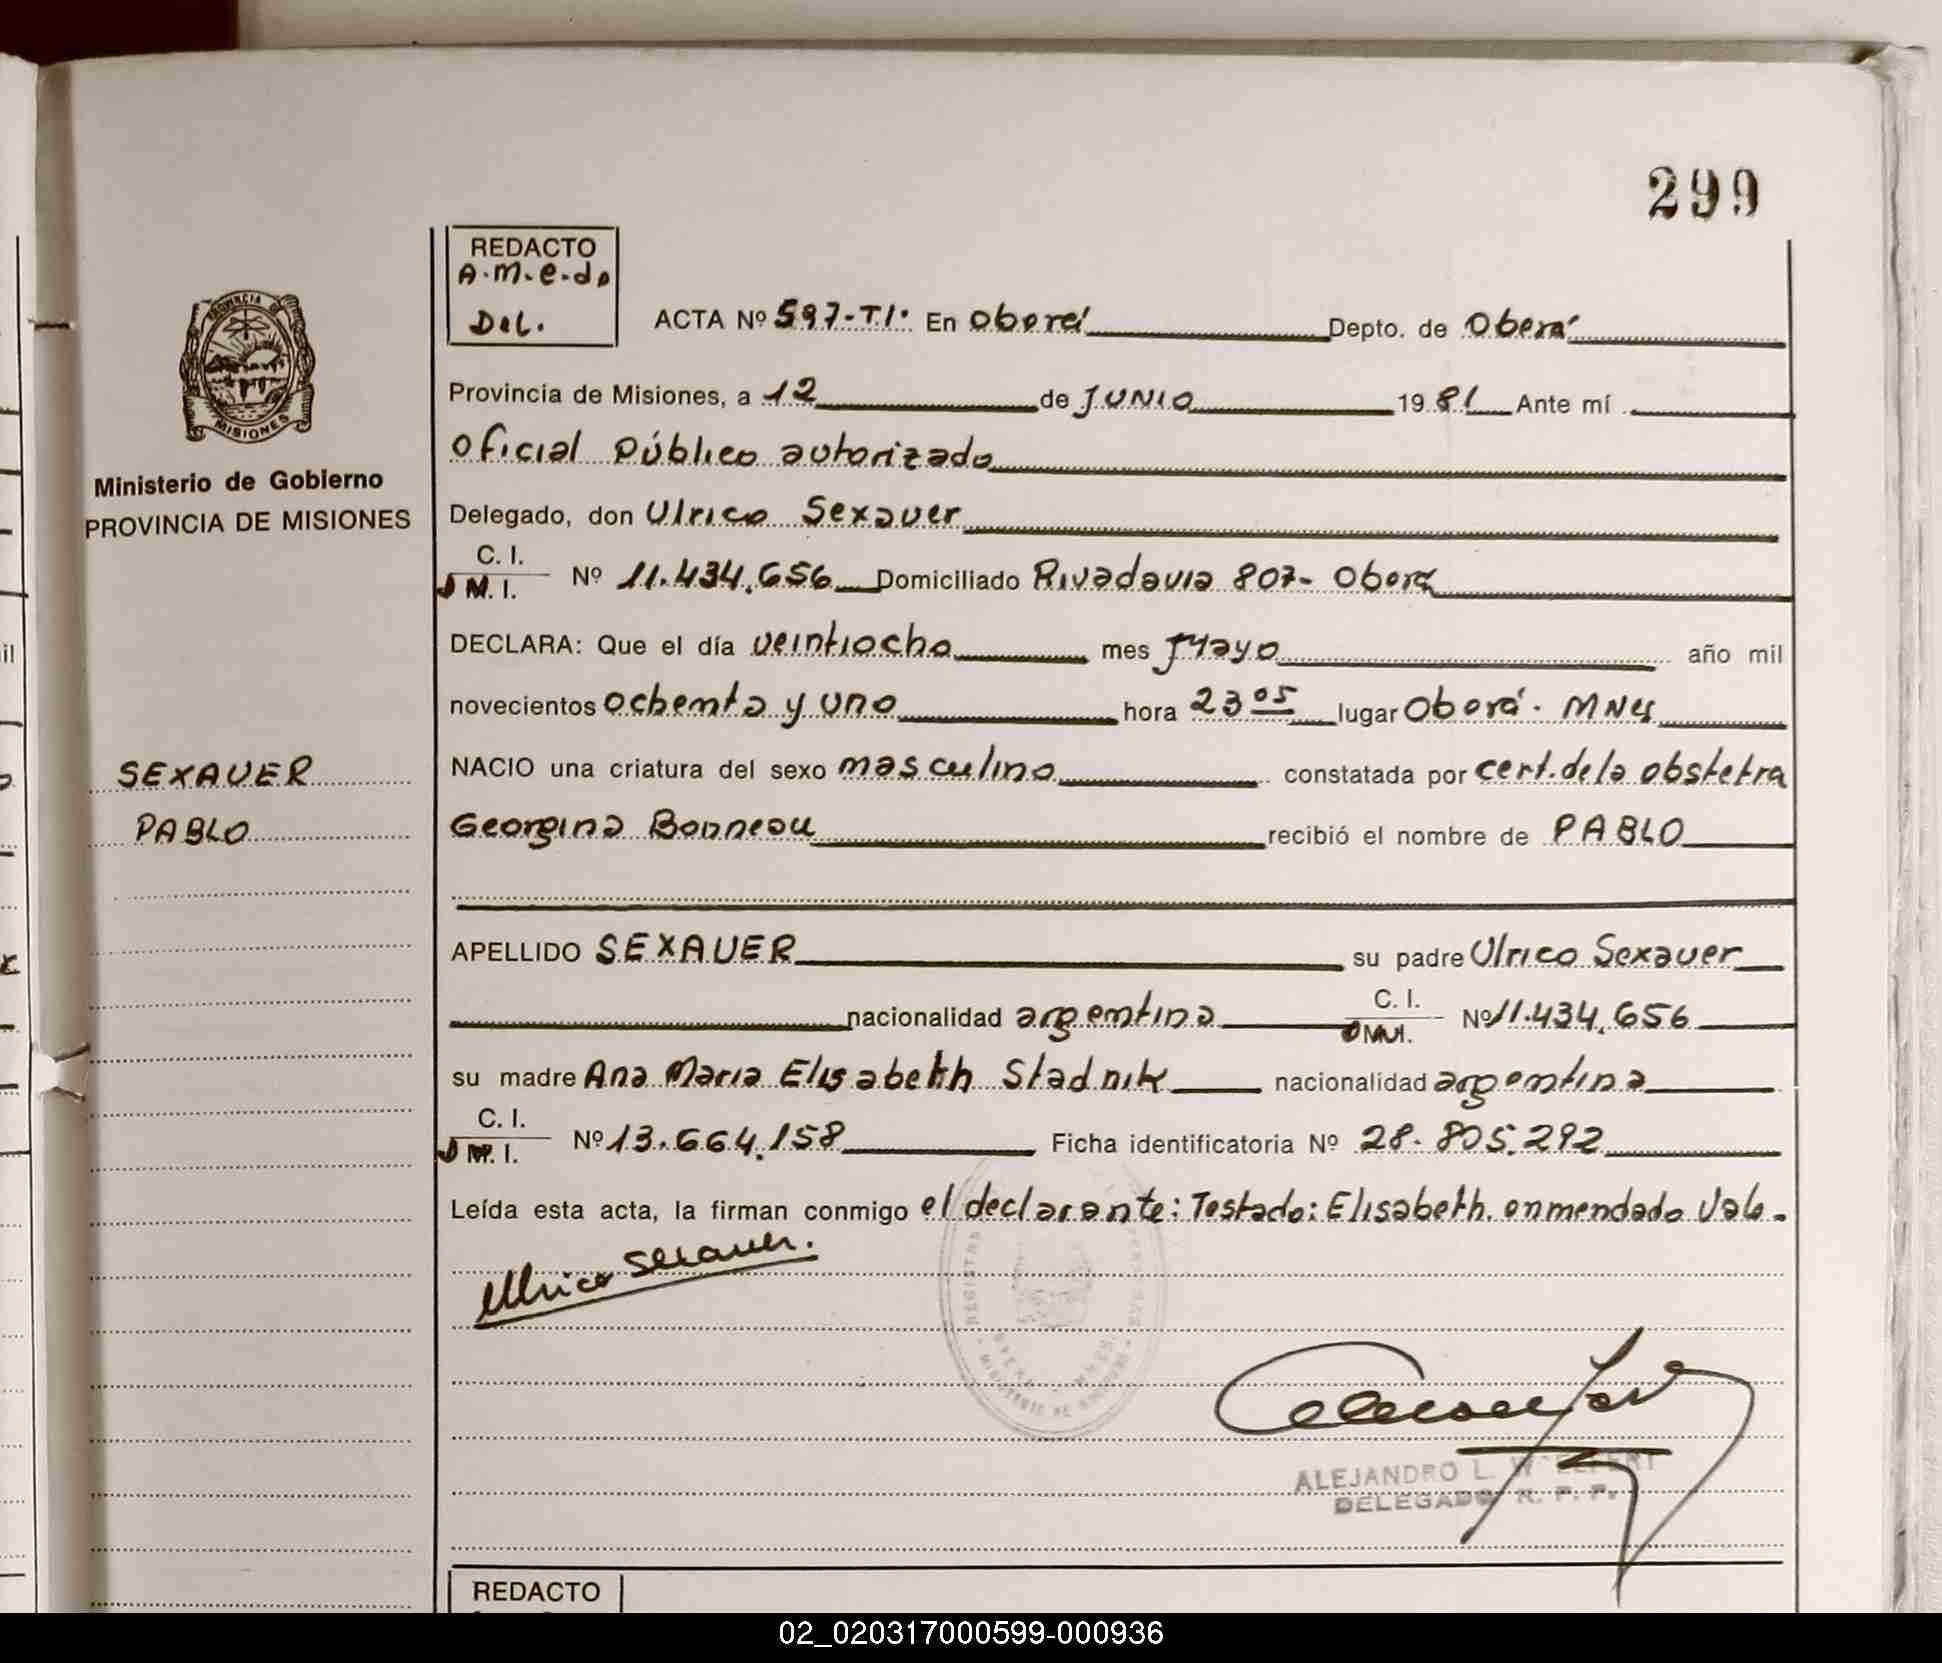 299
REDACTO
A.m.e.do
Del.
ACTA Nº 597-TI. En Oberá Depto. de Oberá
PROVINCIA DE
MISIONES
Provincia de Misiones, a 12 de JUNIO 1981 Ante mí
Oficial Público autorizado
Ministerio de Gobierno
PROVINCIA DE MISIONES
Delegado, don Ulrico Sexauer
C. I.
M. I. Nº 11.434.656 Domiciliado Rivadavia 807- Oberá
DECLARA: Que el día veintiocho mes Mayo año mil
novecientos ochenta y uno hora 23 05 lugar Oberá. MNes
SEXAUER
PABLO
NACIO una criatura del sexo masculino constatada por cert. de la obstetra
Georgina Bonneau recibió el nombre de PABLO
APELLIDO SEXAUER su padre Ulrico Sexauer
nacionalidad argentina C. I. Nº 11.434.656
su madre Ana Maria Elisabeth Stadnik nacionalidad argentina
C. I.
M. I. Nº 13.664.158 Ficha identificatoria Nº 28.805.292
Leída esta acta, la firman conmigo el declarante: Testado: Elisabeth. enmendado Vale.
Ulrico Sexauer.
ALEJANDRO L.
DELEGADO R. P. P.
REDACTO
02_020317000599-000936